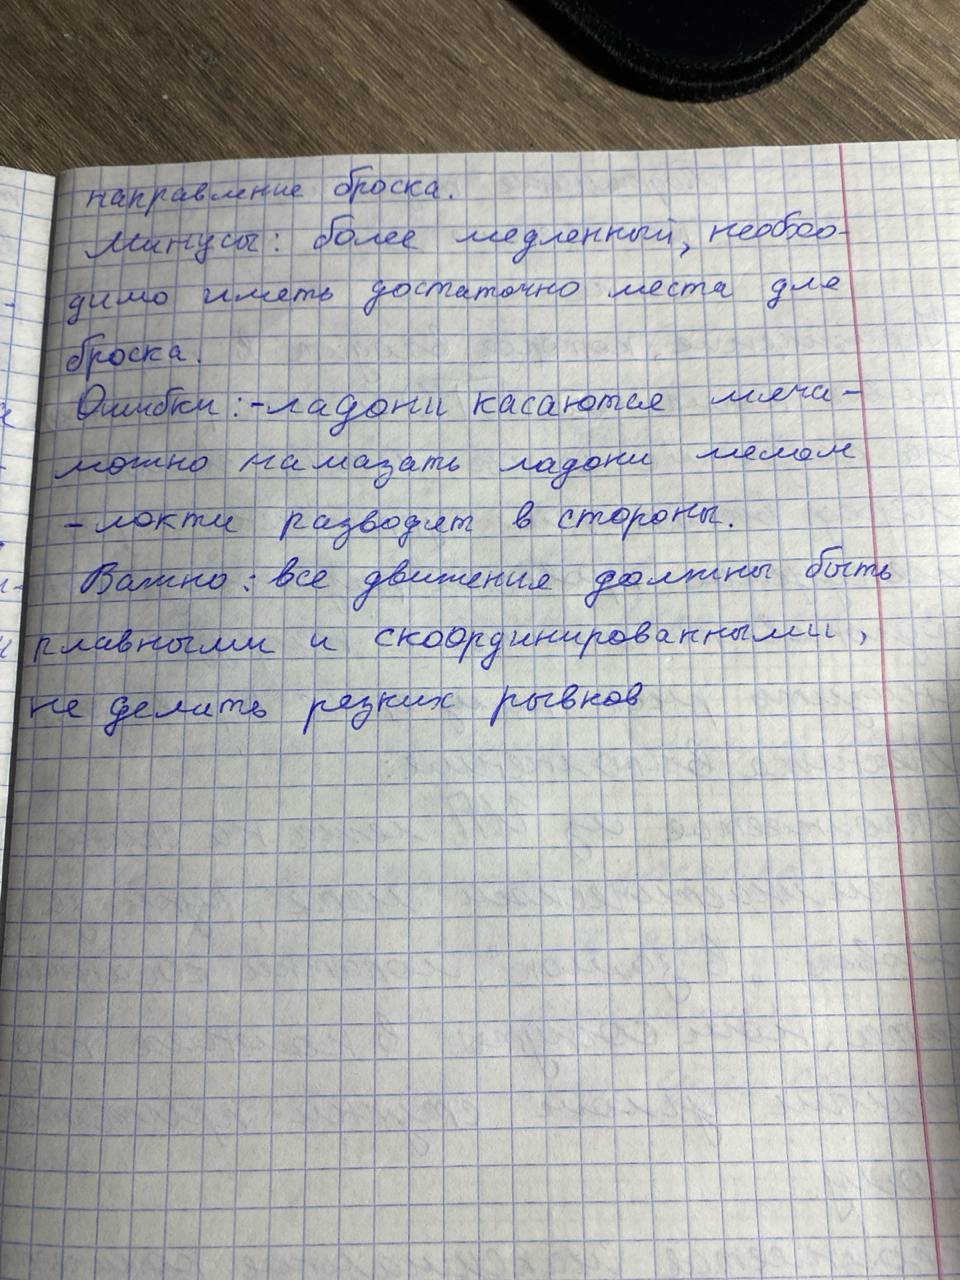 направление броска.
Минусы: более медленный, необхо-
димо иметь достаточно места для
броска.
Ошибки: -ладони касаются мяча-
можно намазать ладони мелом
-локти разводят в стороны.
Важно: все движения должны быть
плавными и скоординированными,
не делать резких рывков